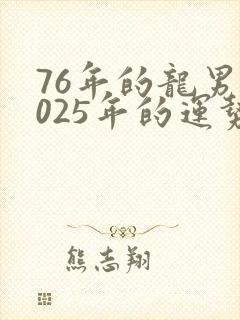 76年的龍男
025年的運勢
熊志翔